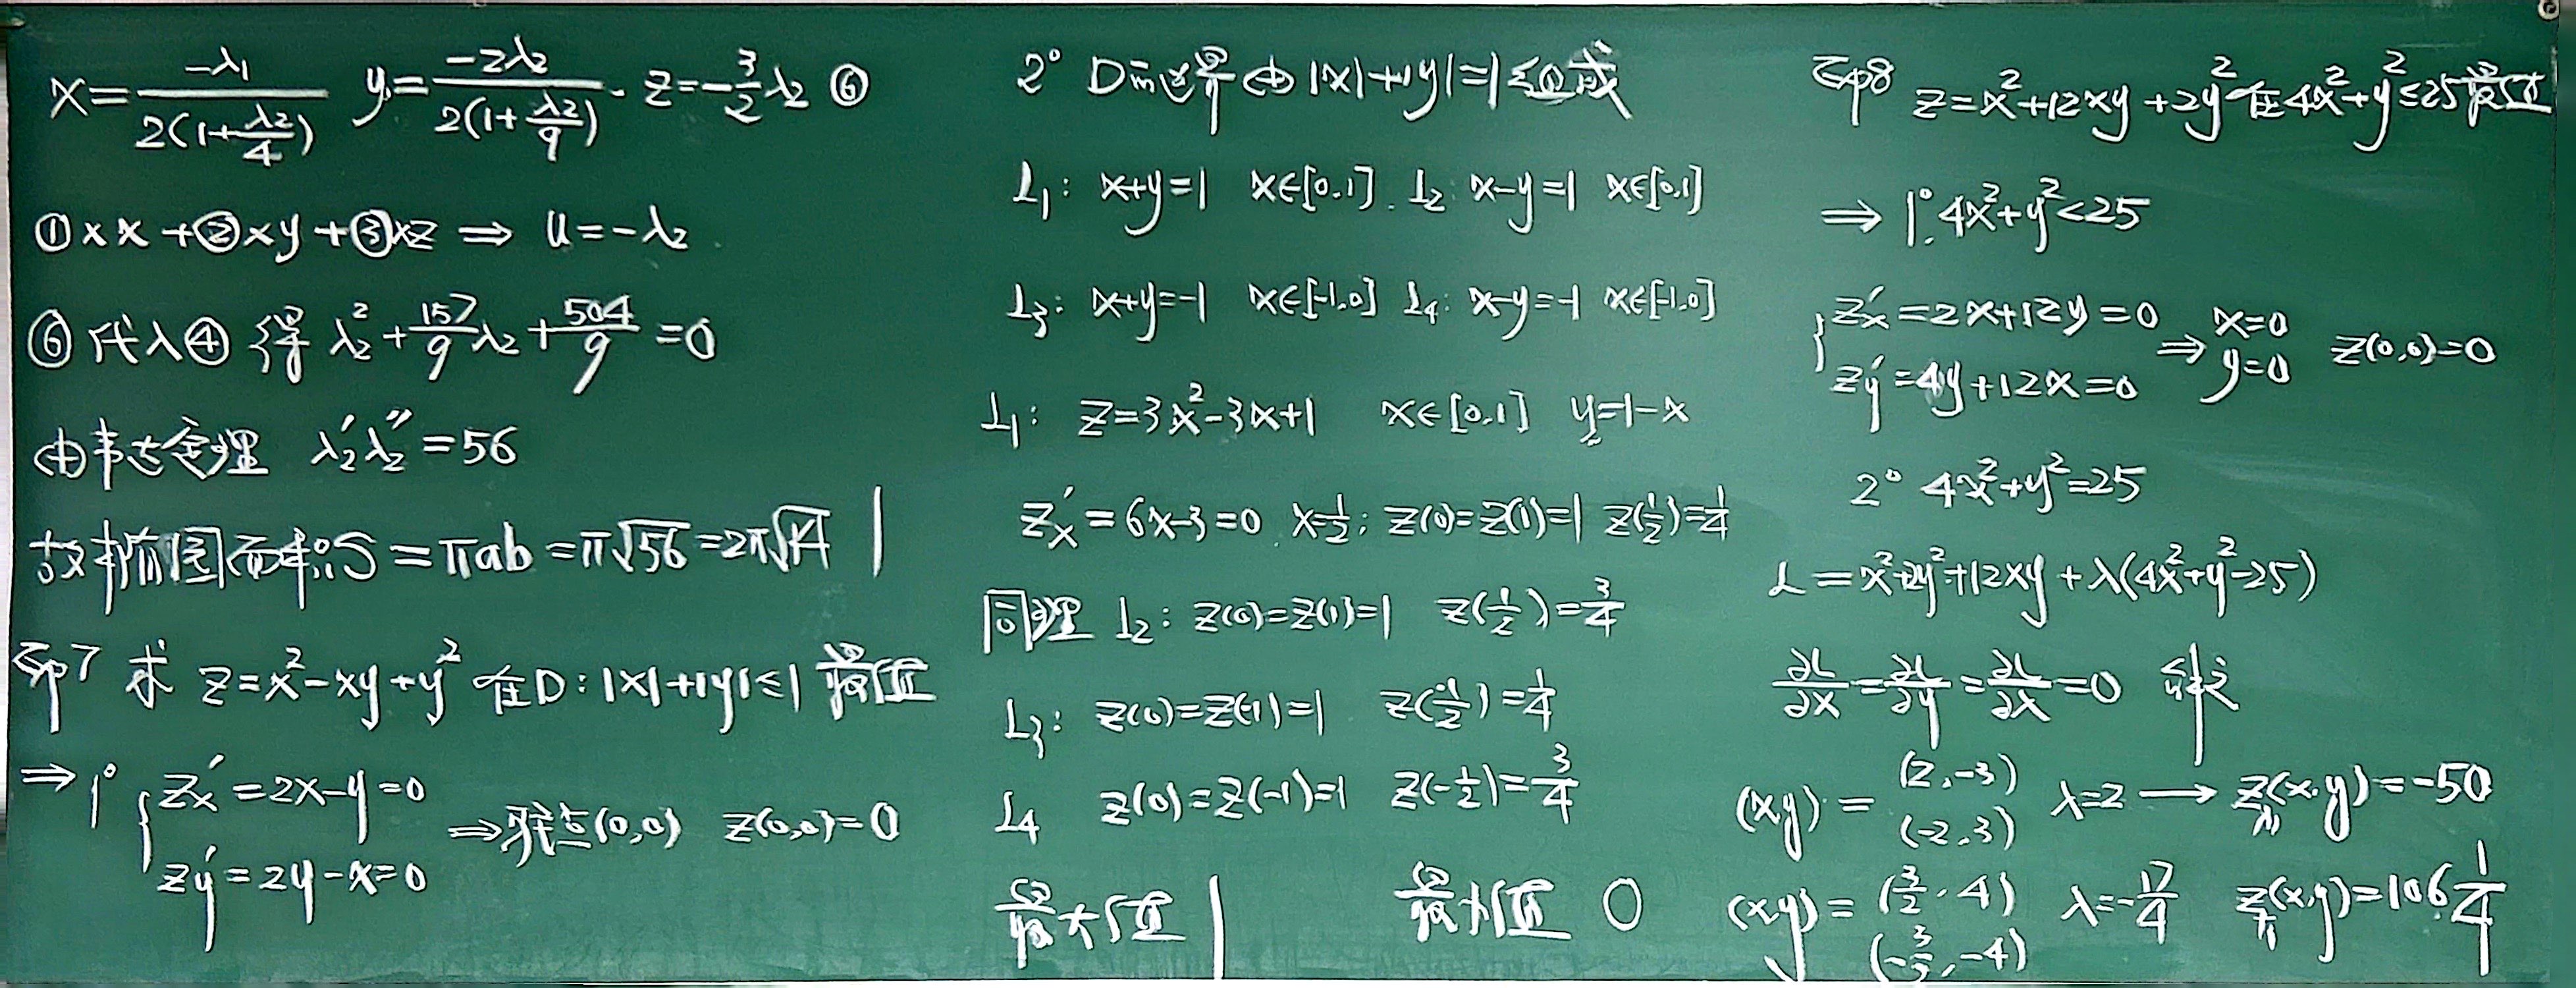 x = -λ₁/(2(1+λ₂/4)) y = -2λ₂/(2(1+λ₂/9)) . z = -3/2 λ₂ ⑥
①×x + ②×y + ③×z ⇒ u = -λ₂
⑥代入④得 λ₂² + 157/9 λ₂ + 504/9 = 0
由韦达定理 λ₂'λ₂'' = 56
故椭圆面积S = πab = π√56 = 2π√14
eg7 求 z = x² - xy + y² 在D: |x|+|y|≤1 最值
⇒ 1° { zx' = 2x-y = 0
zy' = 2y-x = 0 ⇒ 驻点(0,0) z(0,0) = 0
2° D的边界由|x|+|y|=1组成
L₁: x+y=1 x∈[0,1]. L₂ x-y=1 x∈[0,1]
L₃: x+y=-1 x∈[-1,0] L₄: x-y=-1 x∈[-1,0]
L₁: z=3x²-3x+1 x∈[0,1] y=1-x
zx' = 6x-3=0 x=1/2; z(0)=z(1)=1 z(1/2)=1/4
同理 L₂: z(0)=z(1)=1 z(1/2)=3/4
L₃: z(0)=z(-1)=1 z(-1/2)=1/4
L₄ z(0)=z(-1)=1 z(-1/2)=3/4
最大值 1 最小值 0
eg8 z=x²+12xy+2y² 在4x²+y²≤25最值
⇒ 1°. 4x²+y²<25
{ zx' = 2x+12y=0
zy' = 4y+12x=0 ⇒ x=0 y=0 z(0,0)=0
2° 4x²+y²=25
L = x²+2y²+12xy+λ(4x²+y²-25)
∂L/∂x = ∂L/∂y = ∂L/∂λ = 0 解之
(x,y) = (2,-3) (-2,3) λ=2 → z小(x,y) = -50
(x,y) = (3/2, 4) (-3/2, -4) λ=-17/4 z大(x,y) = 106 1/4